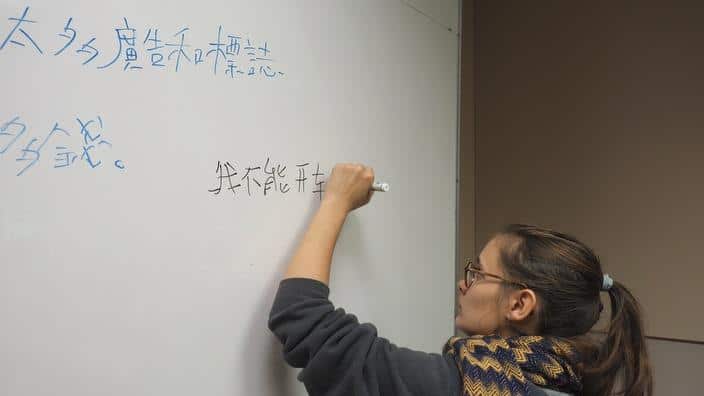 太多廣告和標誌、
多錢。
我不能开车